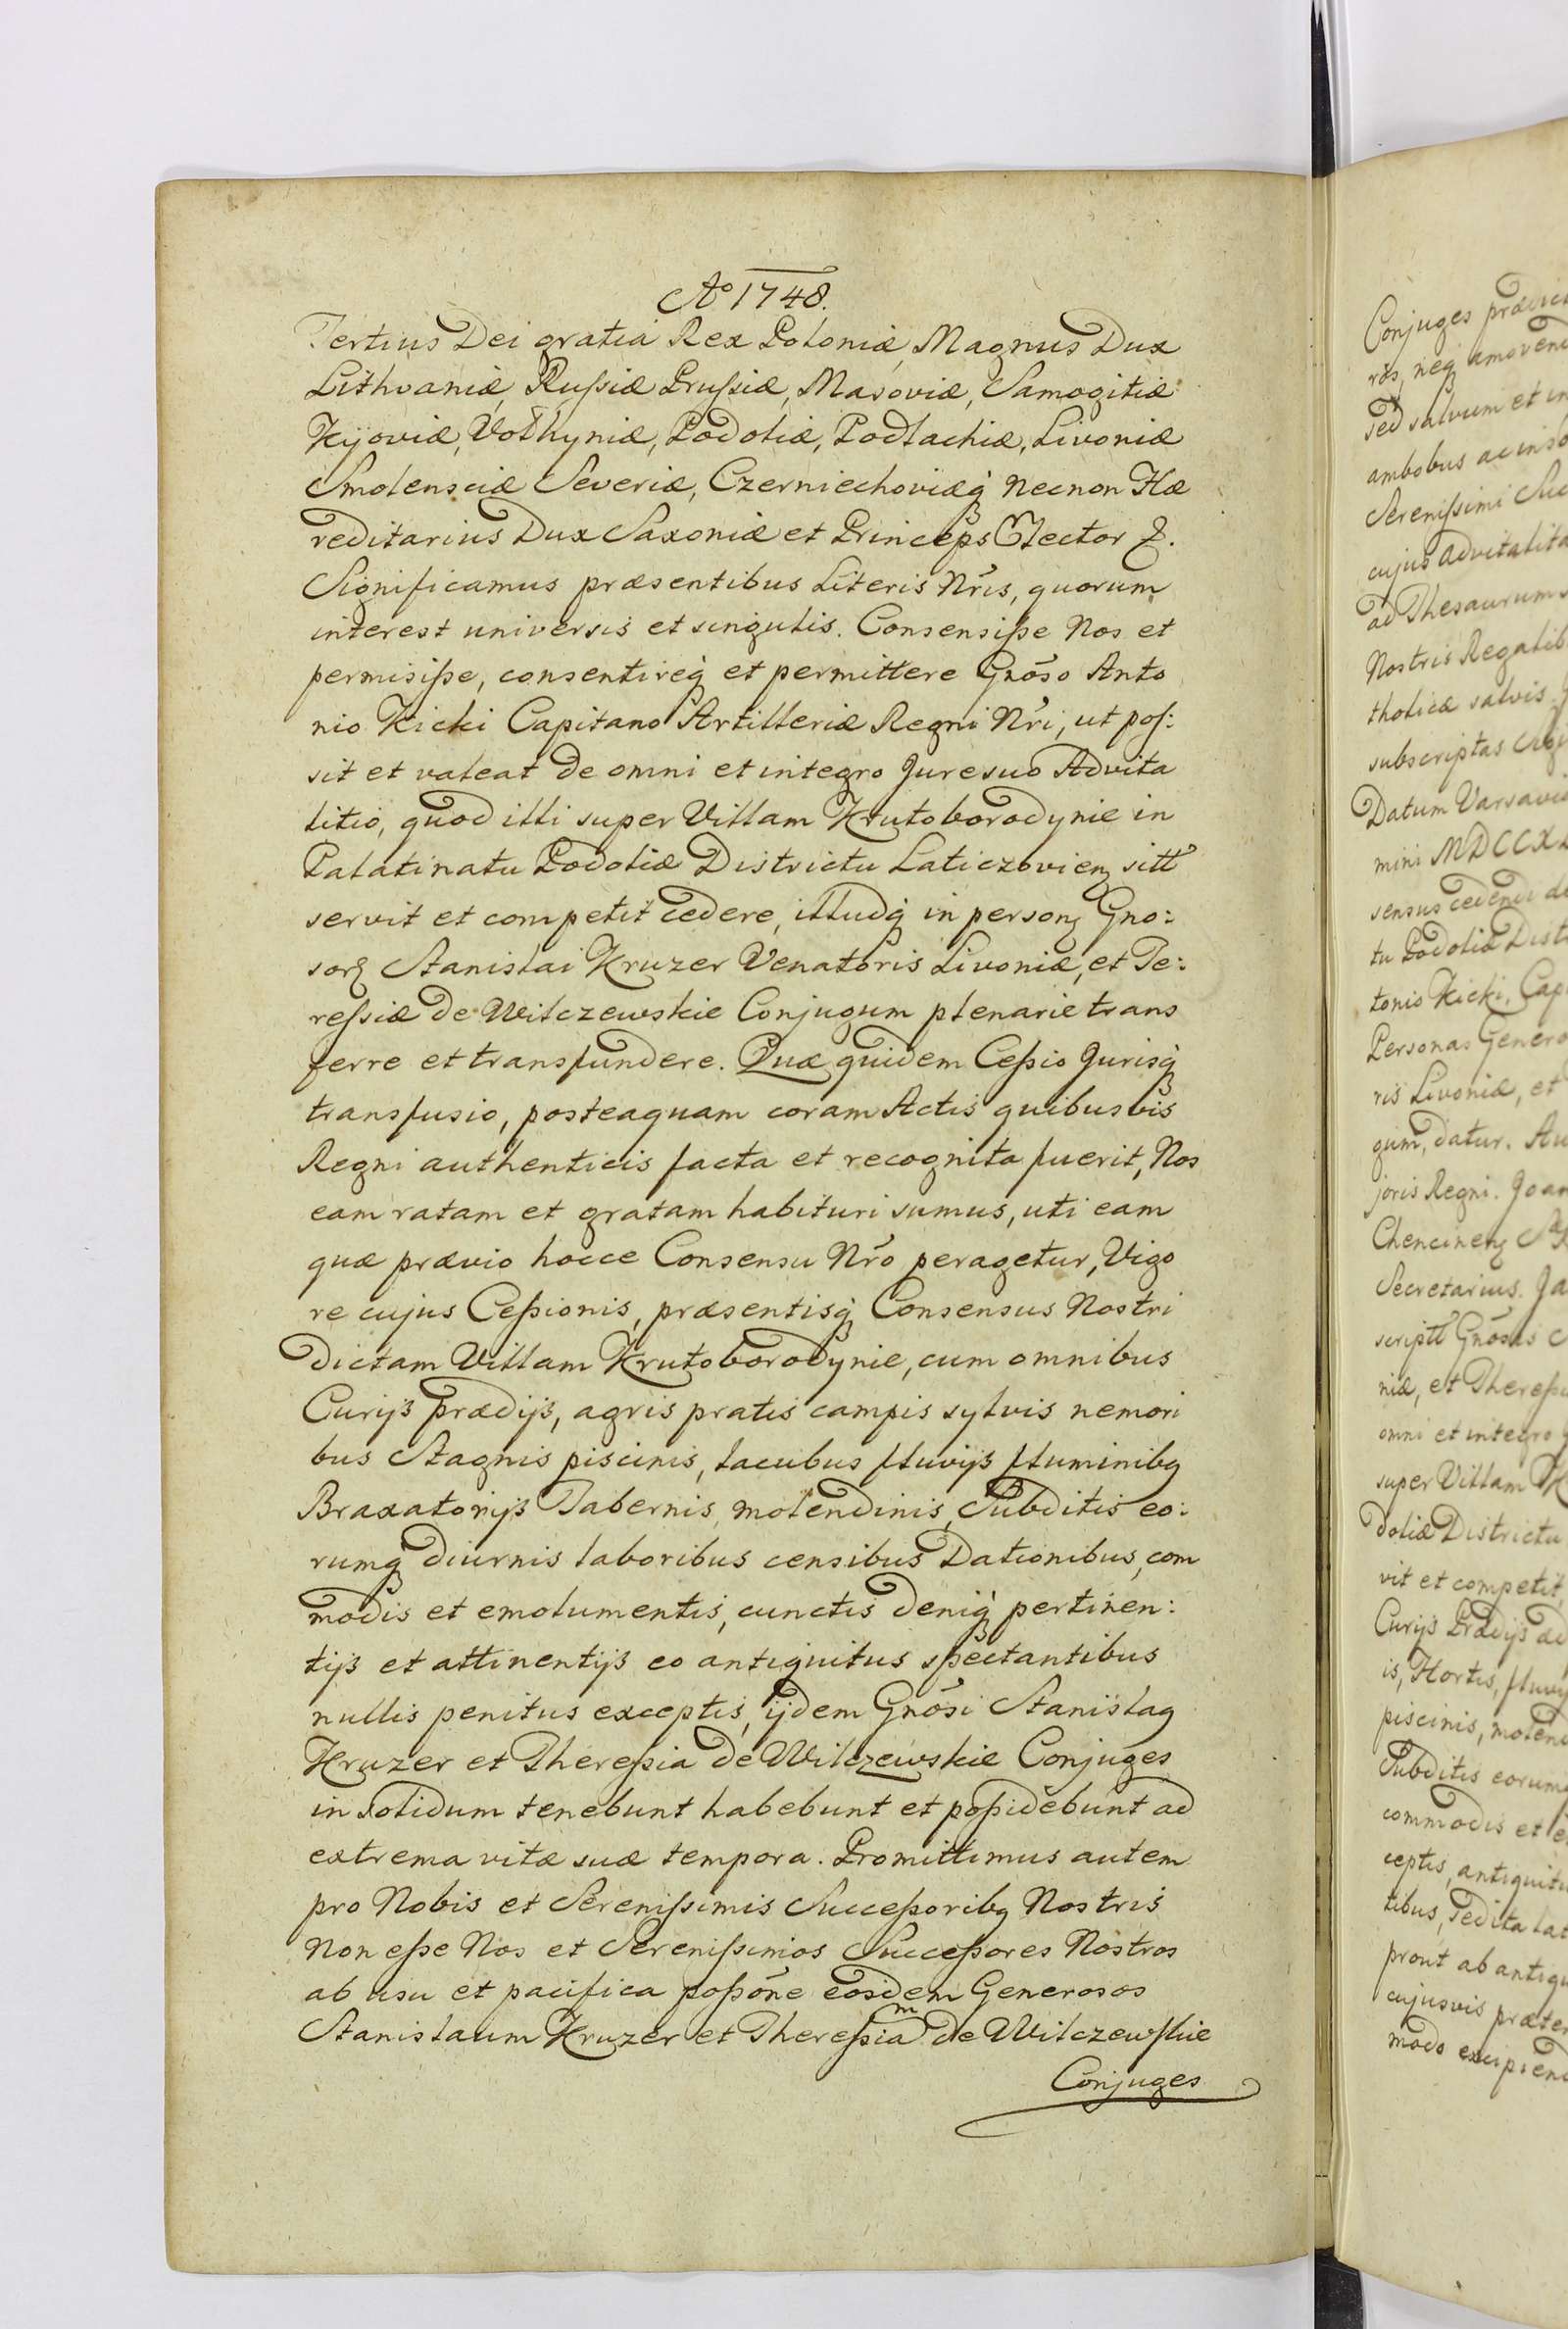 Aº 1748.
Tertius Dei gratia Rex Poloniæ, Magnus Dux
Lithvaniæ, Rußiæ Prußiæ, Masoviæ, Samogitiæ
Kijoviæ, Volhyniæ, Podoliæ, Podlachiæ, Livoniæ
Smolensciæ Severiæ, Czerniechoviæq̃ necnon Hæ
reditarius Dux Saxoniæ et Princeps Elector &.
Significamus præsentibus Literis Nr̃is, quorum
interest universis et singulis. Consensiße Nos et
permisiße, consentireq̃ et permittere Gnõso Anto
nio Kicki Capitano Artilleriæ Regni Nr̃i, ut pos:
sit et valeat de omni et integro Jure suo Advita
litio, quod illi super Villam Krutoborodynie in
Palatinatu Podoliæ Districtu Laticzovien̄ sitt
servit et competit cedere, illudq̃ in person̄ Gno:
sor̄ Stanislai Kruzer Venatoris Livoniæ, et Te:
reßiæ de Wilczewskie Conjugum plenarie trans
ferre et transfundere. Quæ quidem Ceßio Jurisq̃
transfusio, posteaquam coram Actis quibusvis
Regni authenticis facta et recognita fuerit, Nos
eam ratam et gratam habituri sumus, uti eam
quæ prævio hocce Consensu Nr̃o peragetur, Vigo
re cujus Ceßionis, præsentisq̃ Consensus Nostri
dictam Villam Krutoborodynie, cum omnibus
Curijs prædijs, agris pratis campis sylvis nemori
bus Stagnis piscinis, lacubus fluvijs fluminibq
Braxatorijs Tabernis, molendinis, Subditis eo:
rumq̃ diurnis laboribus censibus Dationibus, com
modis et emolumentis, cunctis deniq̃ pertinen:
tijs et attinentijs eo antiquitus spectantibus
nullis penitus exceptis, ijdem Gnõsi Stanislaq
Kruzer et Thereßia de Wilczewskie Conjuges
in solidum tenebunt habebunt et poßidebunt ad
extrema vitæ suæ tempora. Promittimus autem
pro Nobis et Sereniſsimis Succeßoribq Nostris
Non eße Nos et Sereniſsimos Succeßores Nostros
ab usu et pacifica poßōne eosdem Generosos
Stanislaum Kruzer et Thereßiam de Wilczewskie
Conjuges
Conjuges
ros, neq̃
Sed salvum et
ambobus
Sereniſsimi
cujus advitalita
ad Thesaurum
Nostris Regalib
tholicæ salvis
subscriptas
Datum Varsavi
mini MDCCX
sensus cedendi
tu Podoliæ Dist
tonio Kicki, Cap
Personas Genero
ris Livoniæ, et
gum, datur. Au
joris Regni. Joan
Chencinen̄
Secretarius. Ja
scriptt Gnõsis
niæ, et Thereß
omni et integro
super Villam K
doliæ Districtu
vit et competit,
Curijs Prædijs
is, Hortis, fluvij
piscinis, molend
Subditis eorumq
commodis et e
ceptis, antiquitu
tibus, sed ita lat
prout ab antiqu
cujusvis præter
modo excipiend